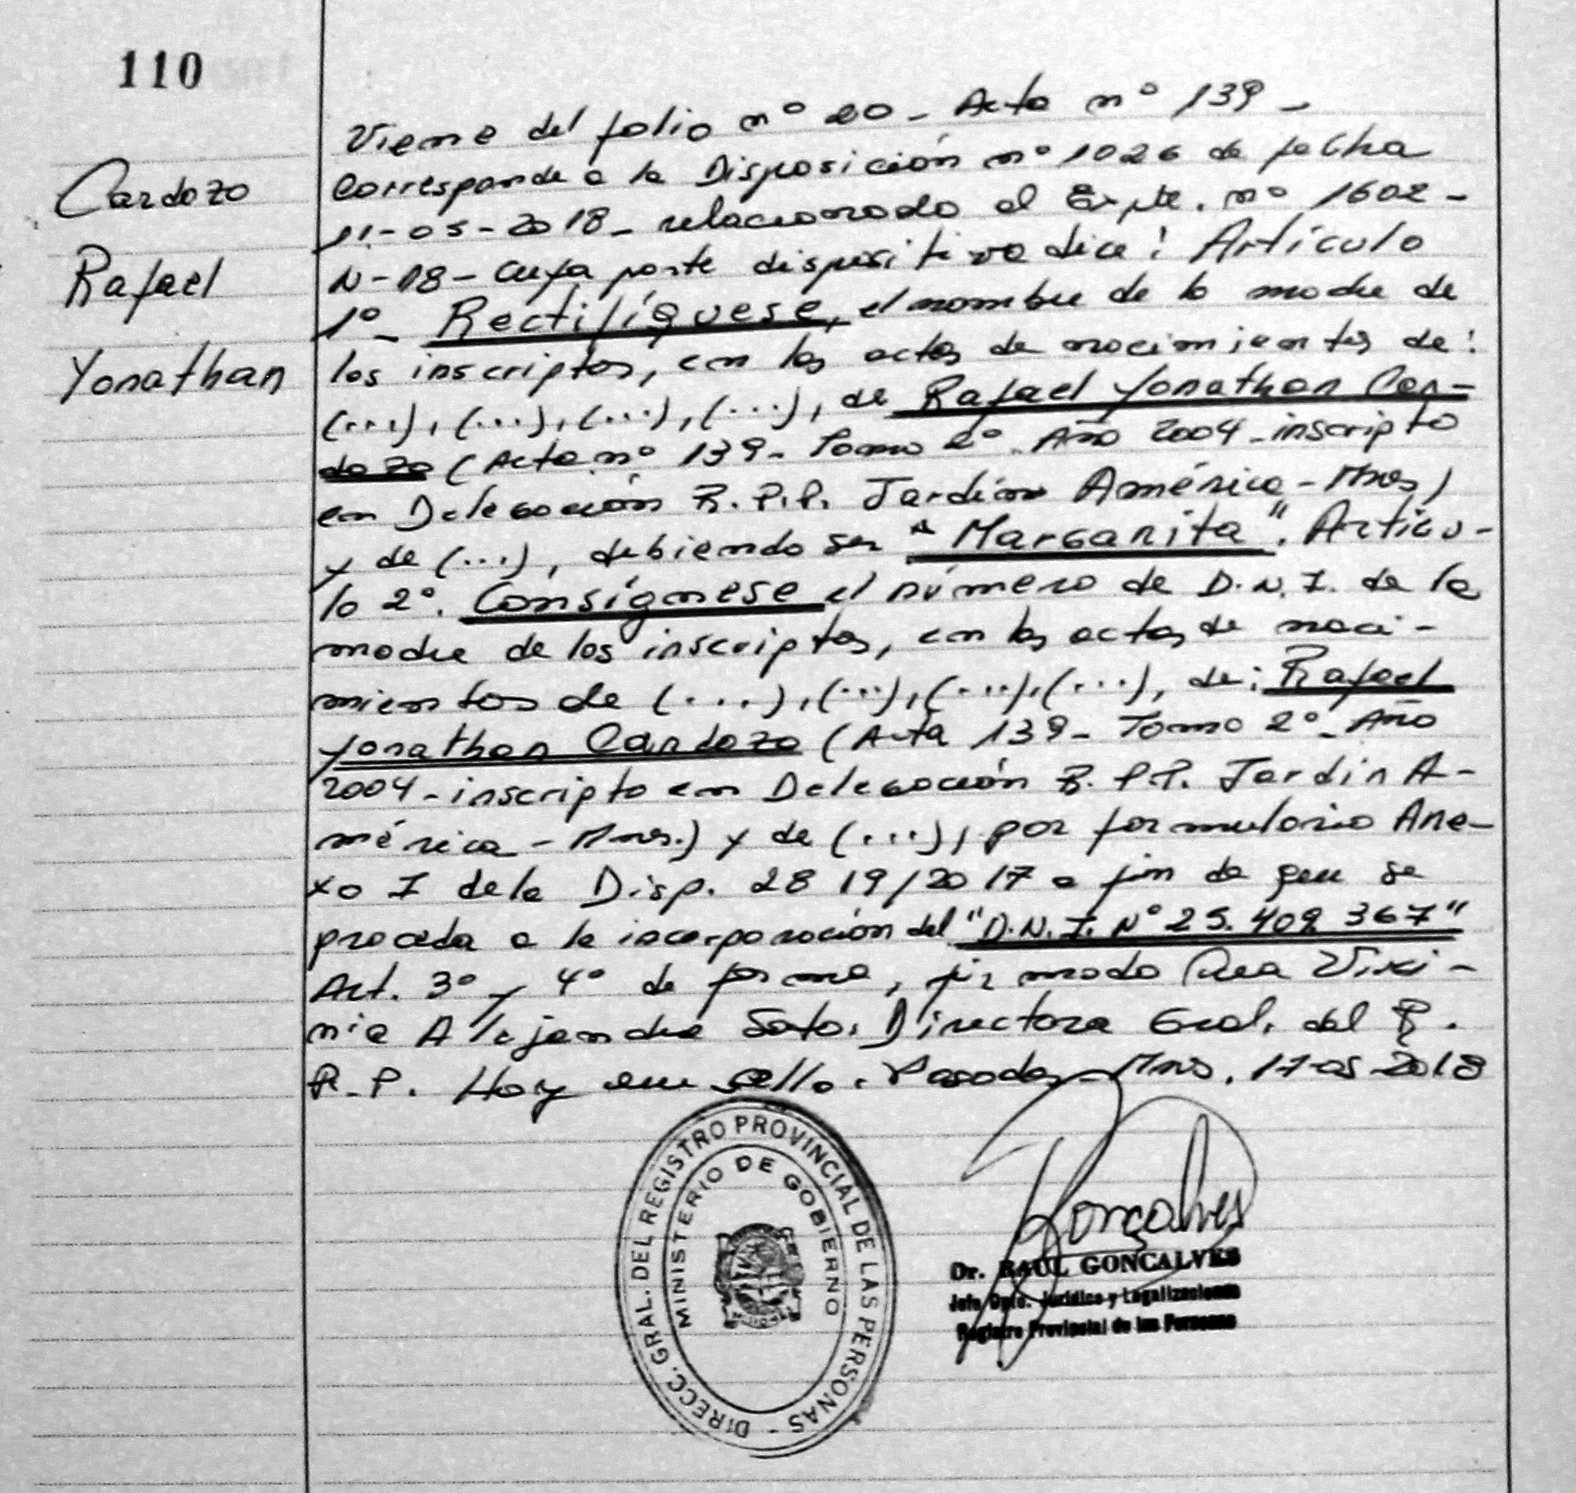 110
Cardozo
Rafael
Yonathan
Viene del folio nº 20 - Acta nº 139 -
Corresponde a la Disposición nº 1026 de fecha
11-05-2018 - relacionado al Expte. nº 1602 -
N-18 - cuya parte dispositiva dice: Artículo
1º - Rectifíquese, el nombre de la madre de
los inscriptos, en las actas de nacimientos de:
(...), (...), (...), (...), de Rafael Yonathan Car-
dozo (Acta nº 139 - Tomo 2º - Año 2004 - inscripto
en Delegación R.P.P. Jardín América - Mnes)
y de (...), debiendo ser "Margarita". Artícu-
lo 2º. Consígnese el número de D.N.I. de la
madre de los inscriptos, en las actas de naci-
mientos de (....), (...), (...), (...), de: Rafael
Yonathan Cardozo (Acta 139 - Tomo 2º - Año
2004 - inscripto en Delegación R.P.P. Jardín A-
mérica - Mnes.) y de (...), por formulario Ane-
xo I de la Disp. 2819/2017 a fin de que se
proceda a la incorporación del "D.N.I. Nº 25.409.367"
Art. 3º y 4º de forma, firmado Lea Vixi-
nia Alejandra Soto. Directora Gral. del R.
P.P. Hay un sello. Posadas - Mnes. 17-05-2018
DIRECC. GRAL. DEL REGISTRO PROVINCIAL DE LAS PERSONAS -
MINISTERIO DE GOBIERNO
Gonçalves
Dr. RAUL GONCALVES
Jefe Dpto. Jurídico y Legalizaciones
Registro Provincial de las Personas